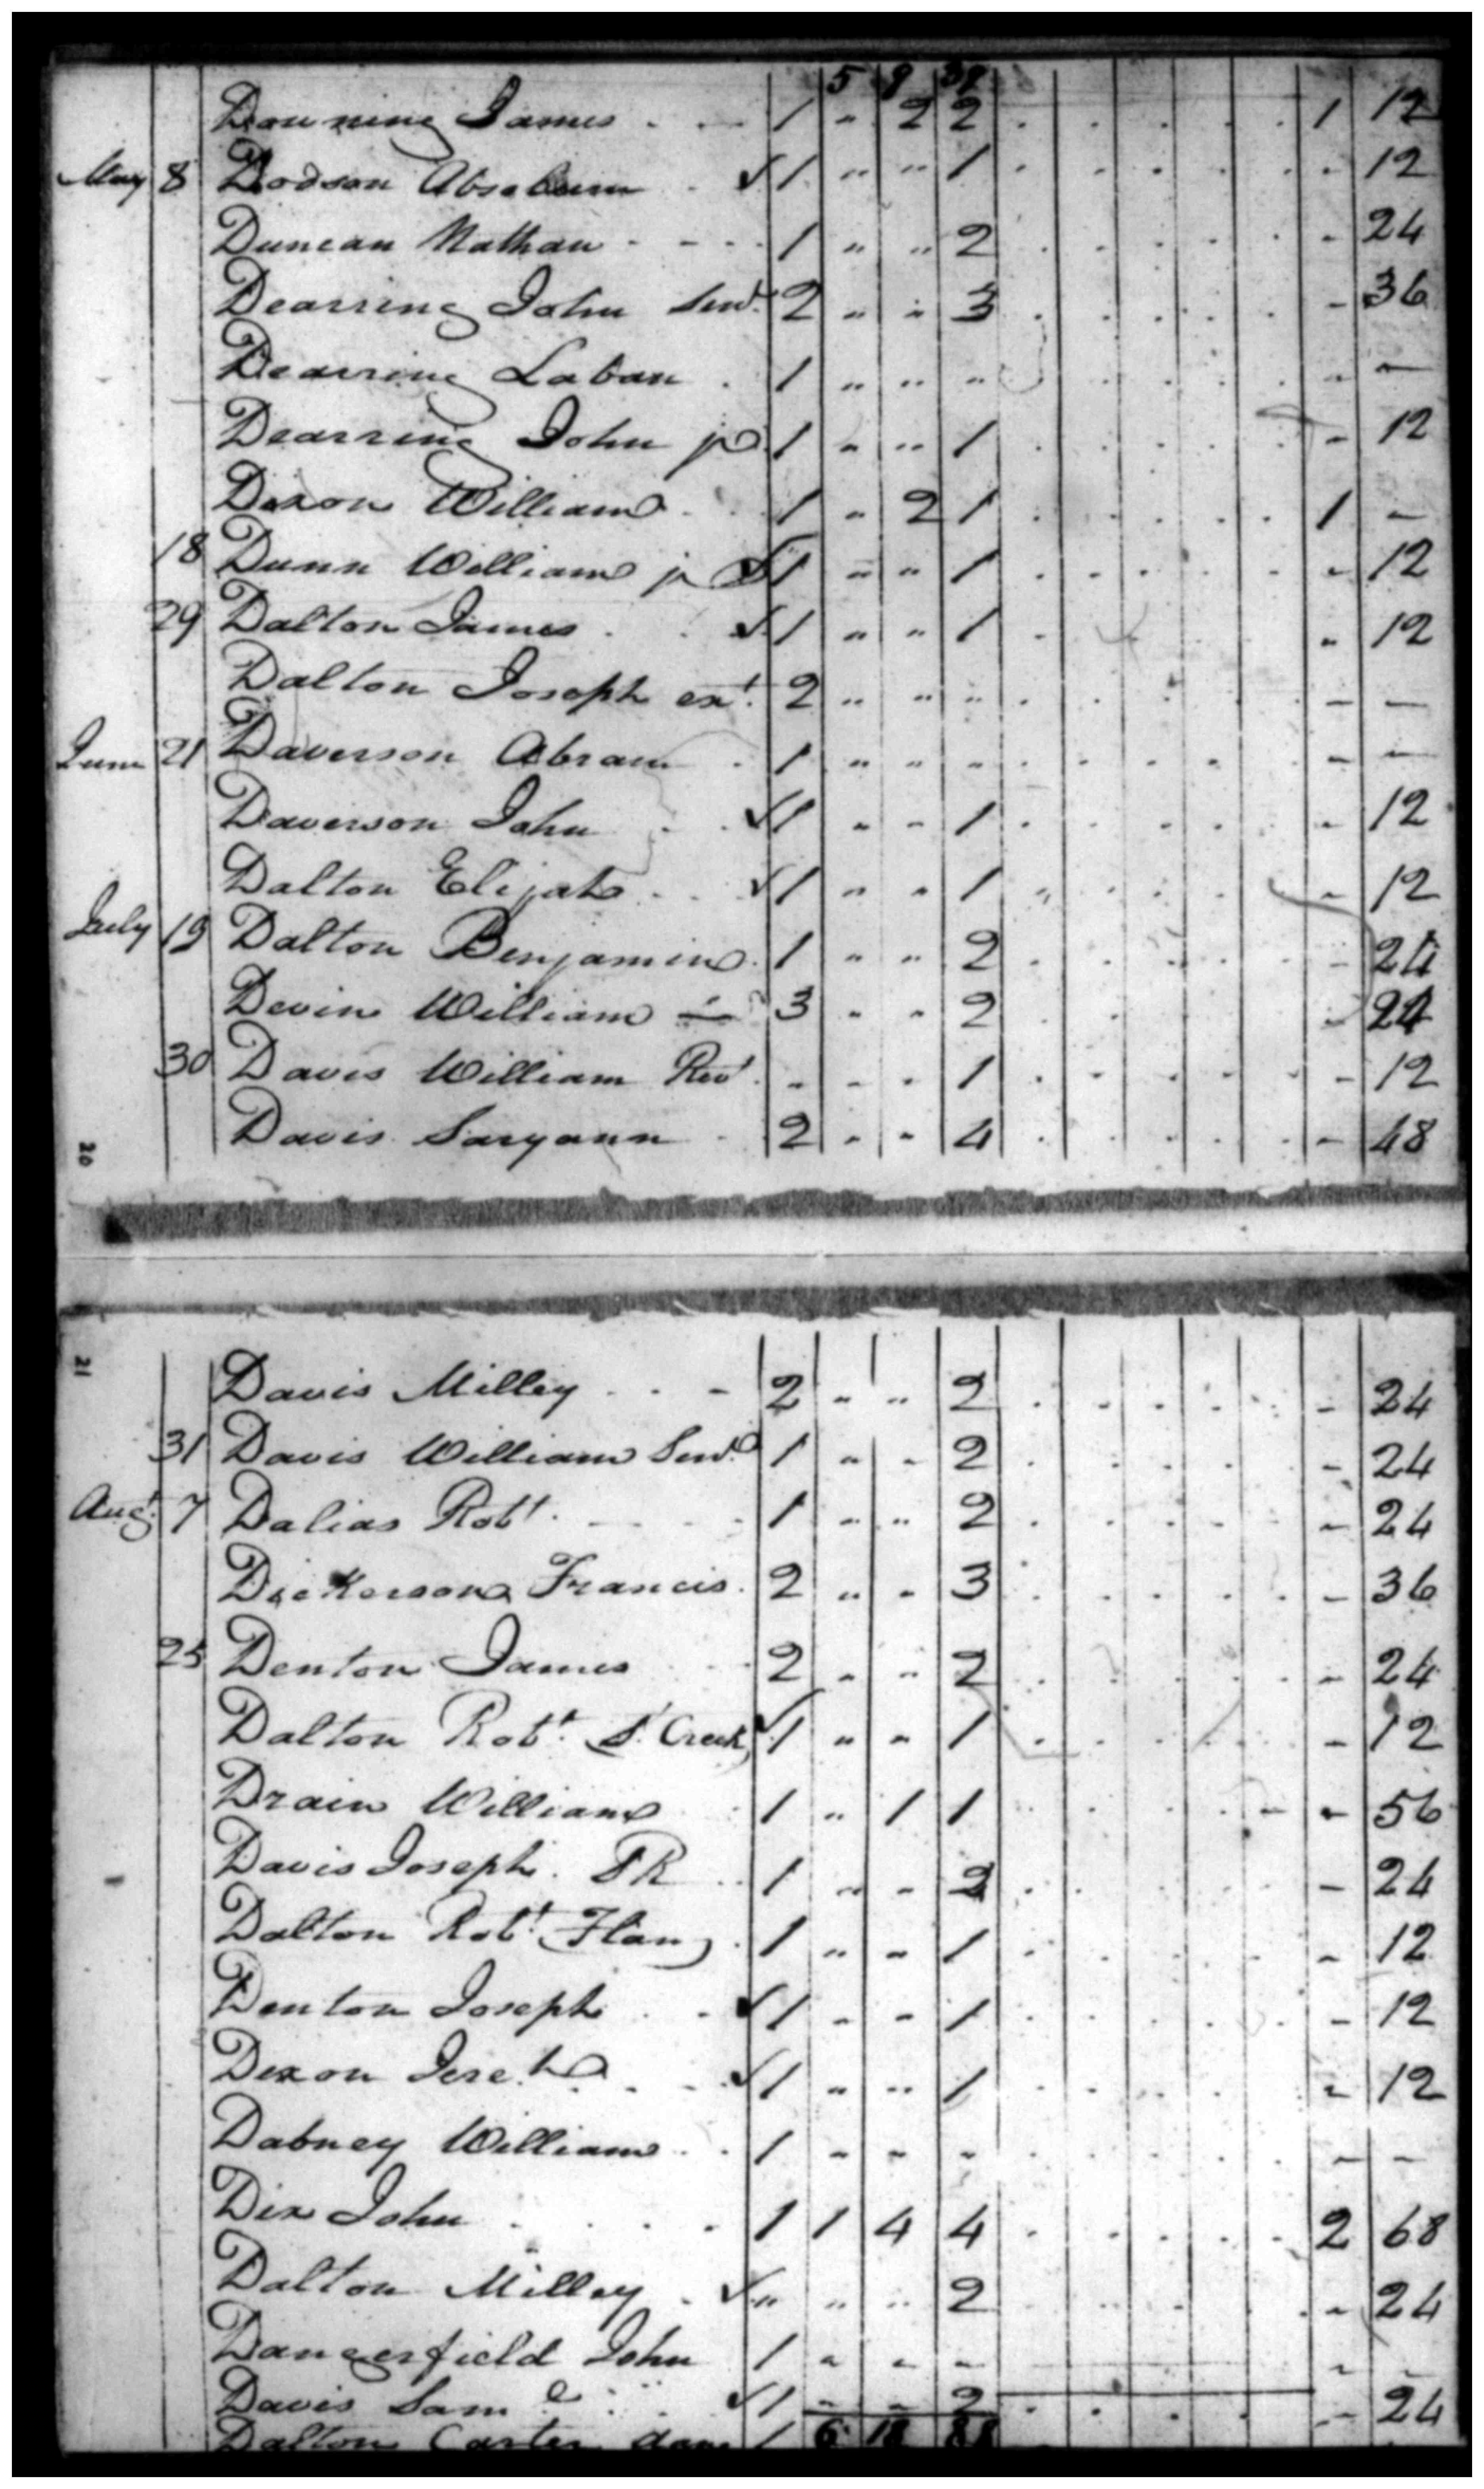 5 9 39
Downing James 1 " 2 2 . . . . . 1 12
May 8 Dodson Absalum ✓ 1 " " 1 . . . . . - 12
Duncan Nathan 1 " " 2 . . . . . - 24
Dearring John Senr 2 " " 3 . . . . . - 36
Dearring Laban 1 " " " . . . . . - -
Dearring John jr 1 " " 1 . . . . . - 12
Dixon William 1 " 2 1 . . . . . 1 -
18 Dunn William jr ✓ 1 " " 1 . . . . . - 12
29 Dalton James ✓ 1 " " 1 . . . . . - 12
Dalton Joseph ext. 2 " " " . . . . . - -
June 21 Daverson Abram 1 " " " . . . . . - -
Daverson John ✓ 1 " " 1 . . . . . - 12
Dalton Elijah ✓ 1 " " 1 . . . . . - 12
July 19 Dalton Benjamin 1 " " 2 . . . . . - 24
Devin William 3 " " 2 . . . . . - 24
30 Davis William Revd. - - - 1 . . . . . - 12
Davis Saryann 2 " " 4 . . . . . - 48
20
21
Davis Milley 2 " " 2 . . . . . - 24
31 Davis William Senr 1 " " 2 . . . . . - 24
Augt. 7 Dalias Robt. 1 " " 2 . . . . . - 24
Dickerson Francis 2 " " 3 . . . . . - 36
25 Denton James 2 " " 2 . . . . . - 24
Dalton Robt. S. Creek ✓ 1 " " 1 . . . . . - 12
Drain William 1 " 1 1 . . . . . - 56
Davis Joseph. PR 1 " " 2 . . . . . - 24
Dalton Robt. Flan 1 " " 1 . . . . . - 12
Denton Joseph ✓ 1 " " 1 . . . . . - 12
Dixon Jereh ✓ 1 " " 1 . . . . . - 12
Dabney William 1 " " " . . . . . - -
Dix John 1 1 4 4 . . . . . 2 68
Dalton Milley ✓ " " " 2 . . . . . - 24
Dangerfield John 1 " " " - -
Davis Saml ✓ 1 - - 2 . . . . . - 24
Dalton Carter 1 6 18 88